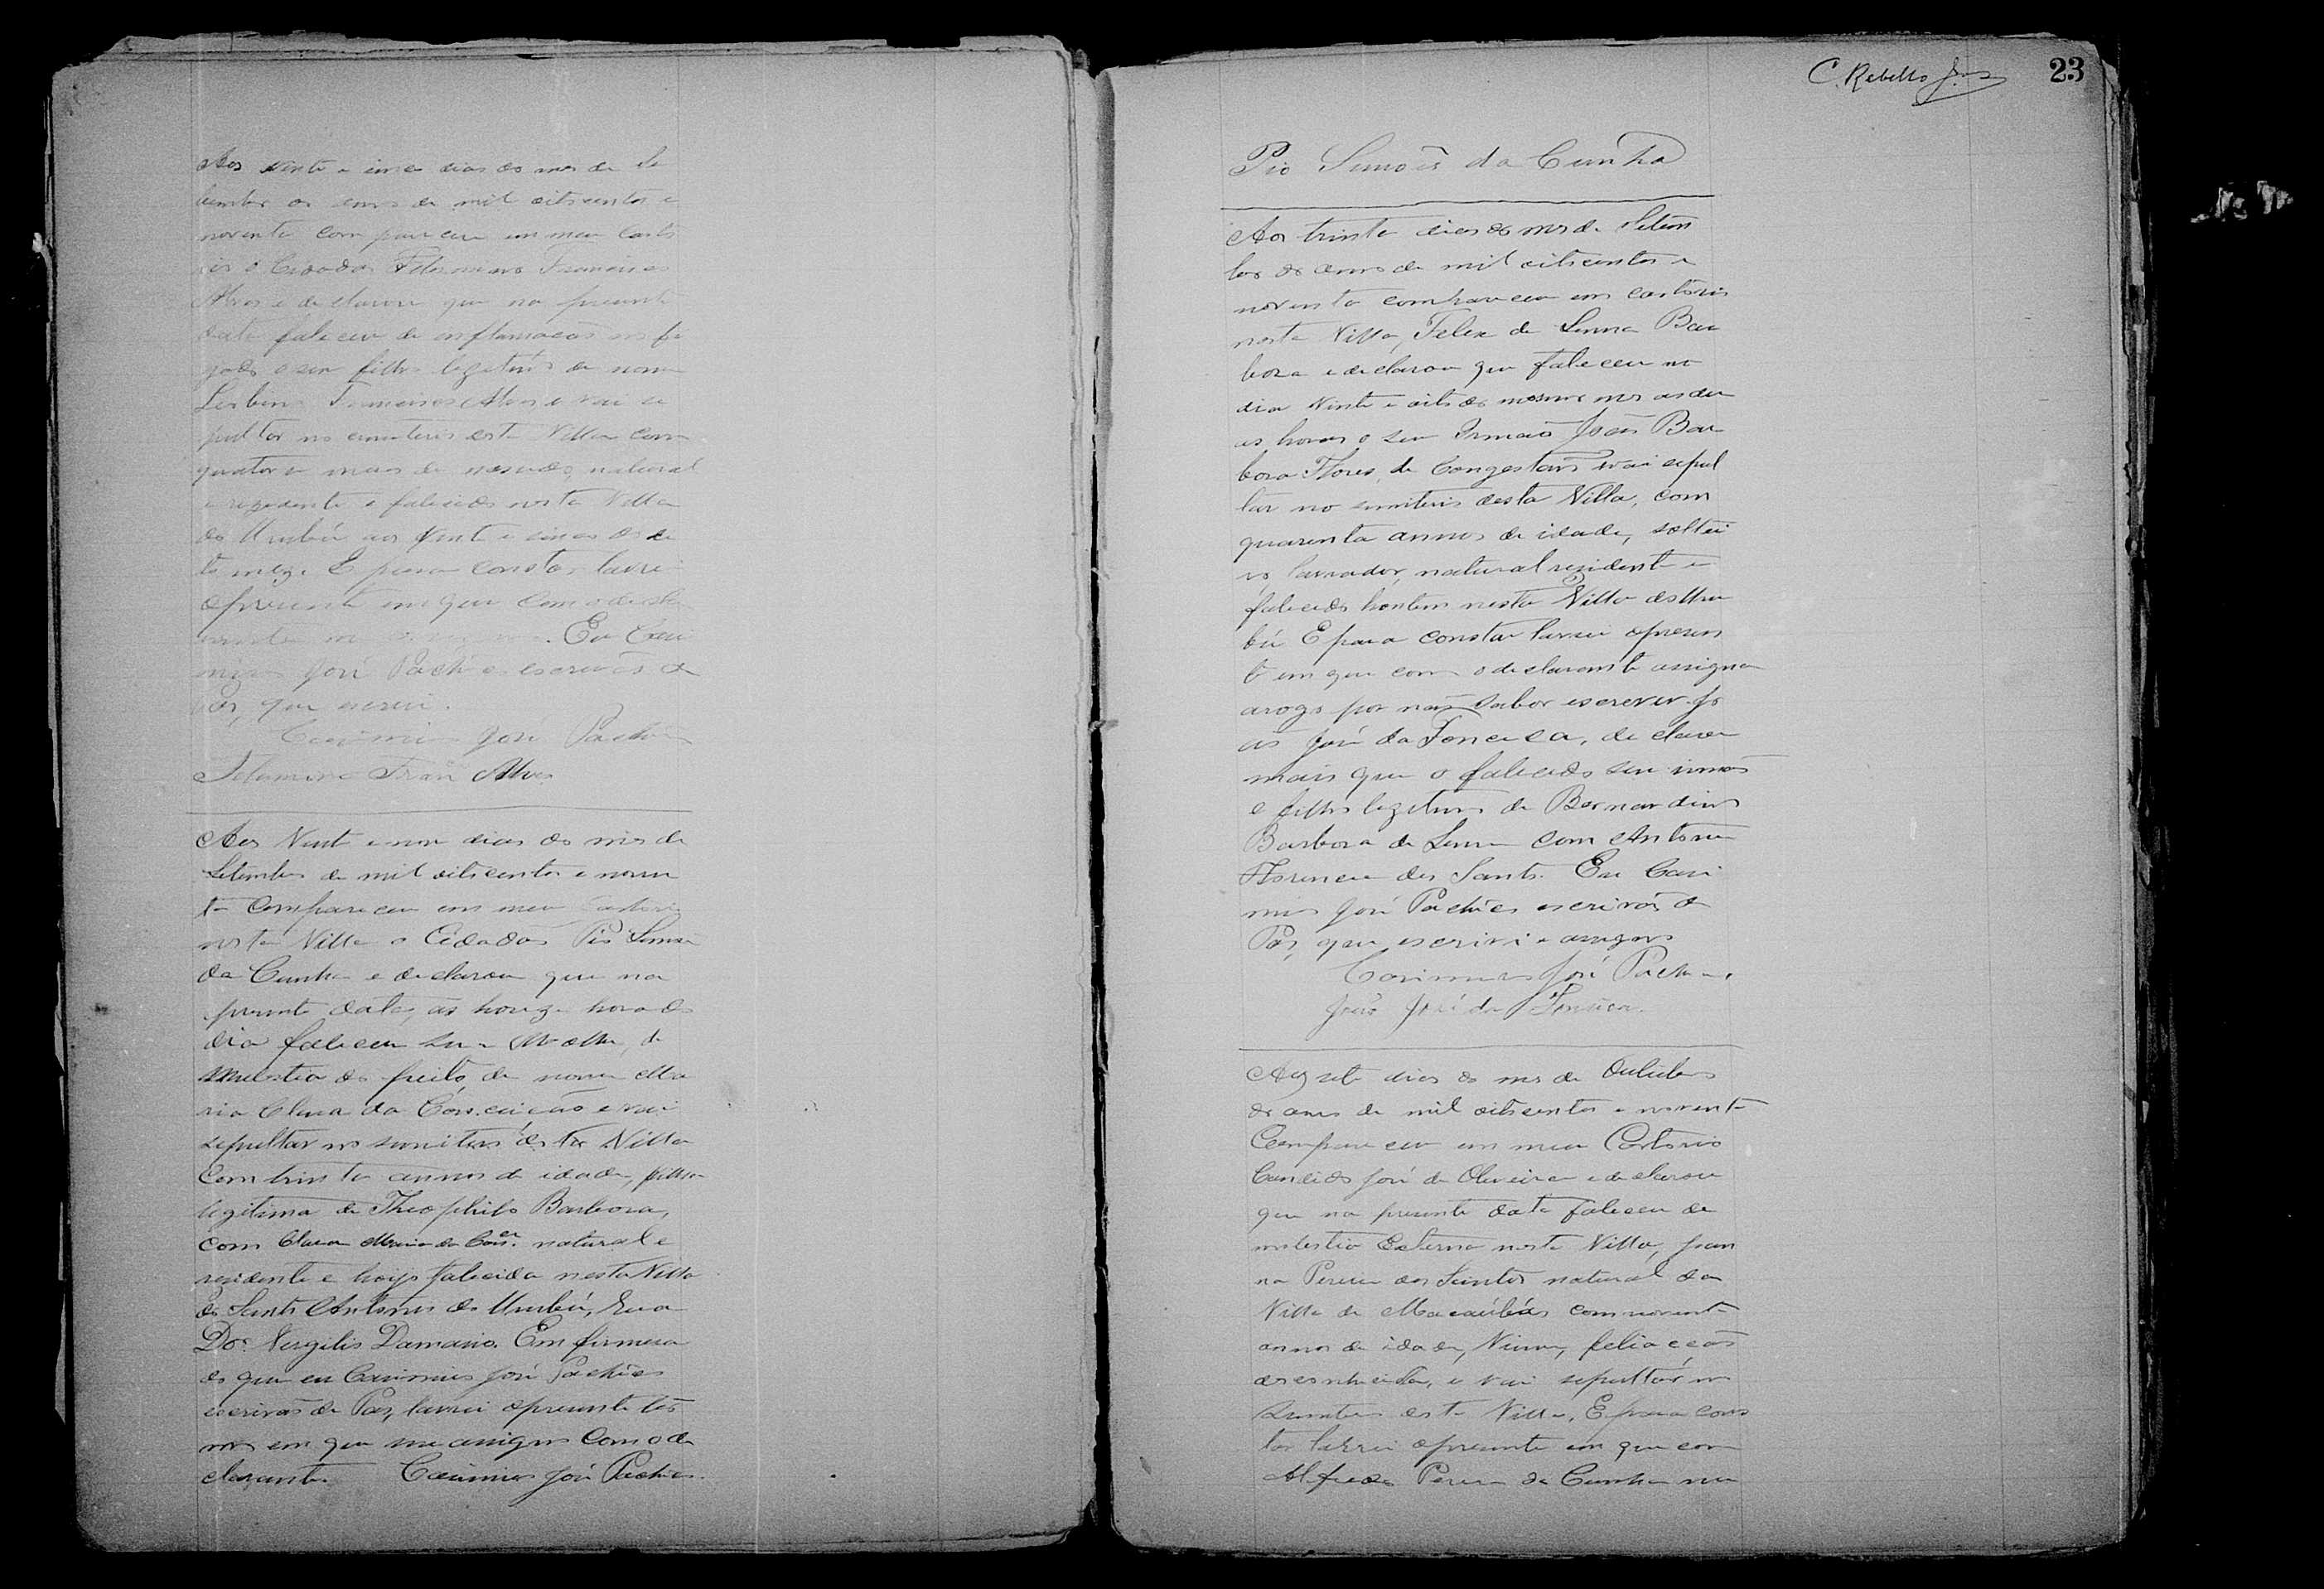 Aos vinte e cinco dias do mes de Se
tembro do anno de mil oitocentos e
noventa compareceu em meu Carto
rio o Cidadão Felismino Francisco
Alves e declarou que na presente
data faleceu de inflamacão no fi
gado o seu filho legitimo de nome
Francisco Alves e vai se
pultar no cimiterio desta Villa com
quatorze mezes de nascido, natural
e rezidente e falecido nesta Villa
do Urubú aos vinte e cinco do
te mez. E para constar lavrei
o presente em que com o decla
rante me assigno. Eu Casi
miro José Pachêco escrivão de
Paz, que escrevi.
Casimiro José Pachêco
Felismino Fran.co Alves
Aos Vinte e nove dias do mes de
Setembro de mil oitocentos e noven
ta Compareceu em meu Cartorio
nesta Villa o Cidadão Pio Simões
da Cunha e declarou que na
presente data, as honze horas do
dia faleceu sua Mulher, de
mulestia do peito, de nome Ma
ria Clara da Conceicão e vai
sepultar no simiterio desta Villa
Com trinta annos de idade, filha
legitima de Theophilo Barboza,
com Clara Maria da Con.cam natural e
rezidente e hoije falecida nesta Villa
de Santo Antonio do Urubú, Rua
Dor. Vergilio Damasio. Em firmeza
do que eu Casimiro José Pachêco
escrivão de Paz, lavrei o presente ter
mo em que me assigno Com o de
clarante. Casimiro José Pachêco.
C. Rebello Jor.
23
Pio Simões da Cunha
Aos trinta dias do mes de Setem
bro do anno de mil oitocentos e
noventa compareceu em cartorio
nesta Villa, Felix de Senna Bar
boza e declarou que faleceu no
dia Vinte e oito do mesmo mes as
horas o seu Irmaõ João Bar
boza Flores, de Congestaõ e vai sepul
tar no simiterio desta Villa, com
quarenta annos de idade, soltei
ro, lavrador, natural rezidente e
falecido hontem nesta Villa do Uru
bú E para constar lavrei o presen
te em que com o declarante assigna
arogo por naõ saber escrever Jo
ão José da Fonceca, declarou
mais que o falecido seu irmaõ
e filho legitimo de Bernardino
Barboza de Senna com Antonia
Florencia dos Santos. Eu Casi
miro José Pachêco escrivaõ de
Paz, que escrivi e assigno
Casimiro José Pachêco.
João José da Fonseca.
Aos sete dias do mes de Outubro
do anno de mil oitocentos e noventa
Compareceu em meu Cartorio
Candido José de Oliveira e declarou
que na presente data faleceu de
mulestia Esterna nesta Villa, Joan
na Pereira dos Santos natural da
Villa de Macaúbas com noventa
annos de idade, Viuva, feliaccaõ
desconhecida, e vai sepultar no
Simiterio desta Villa. E para cons
tar lavrei o presente em que com
Alfredo Pereira da Cunha me